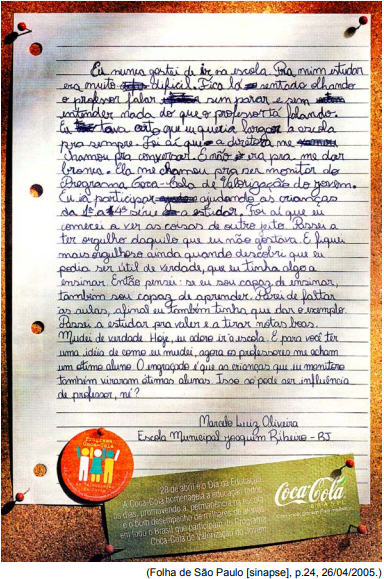 Eu nunca gostei de ir na escola. Pra mim estudar
era muito difícil. Fica lá sentado olhando
o professor falar sem parar e sem
entender nada do que o professor tá falando.
Eu tava certo que eu queria largar a escola
pra sempre. Foi aí que a diretora me
chamou pra conversar. E não era pra me dar
bronca. Ela me chamou pra ser monitor do
Programa Coca-Cola de Valorização do Jovem.
Eu ia participar ajudando as crianças
da 1ª a 4ª série a estudar. Foi aí que eu
comecei a ver as coisas de outro jeito. Passei a
ter orgulho daquilo que eu não gostava. E fiquei
mais orgulhoso ainda quando descobri que eu
podia ser útil de verdade, que eu tinha algo a
ensinar. Então pensei: se eu sou capaz de ensinar,
também sou capaz de aprender. Parei de faltar
as aulas, afinal eu também tinha que dar o exemplo.
Passei a estudar pra valer e a tirar notas boas.
Mudei de verdade. Hoje, eu adoro ir à escola. E para você ter
uma idéia de como eu mudei, agora os professores me acham
um ótimo aluno. O engraçado é que as crianças que eu monitoro
também viraram ótimas alunas. Isso só pode ser influência
de professor, né?
Marcelo Luiz Oliveira
Escola Municipal Joaquim Ribeiro - RJ
Programa
Coca-Cola
28 de abril é o Dia da Educação.
A Coca-Cola homenageia a educação todos
os dias, promovendo a permanência na escola
e o bom desempenho de milhares de alunos
em todo o Brasil que participam do Programa
Coca-Cola de Valorização do Jovem.
Coca-Cola
BRASIL
(Folha de São Paulo [sinapse], p.24, 26/04/2005.)